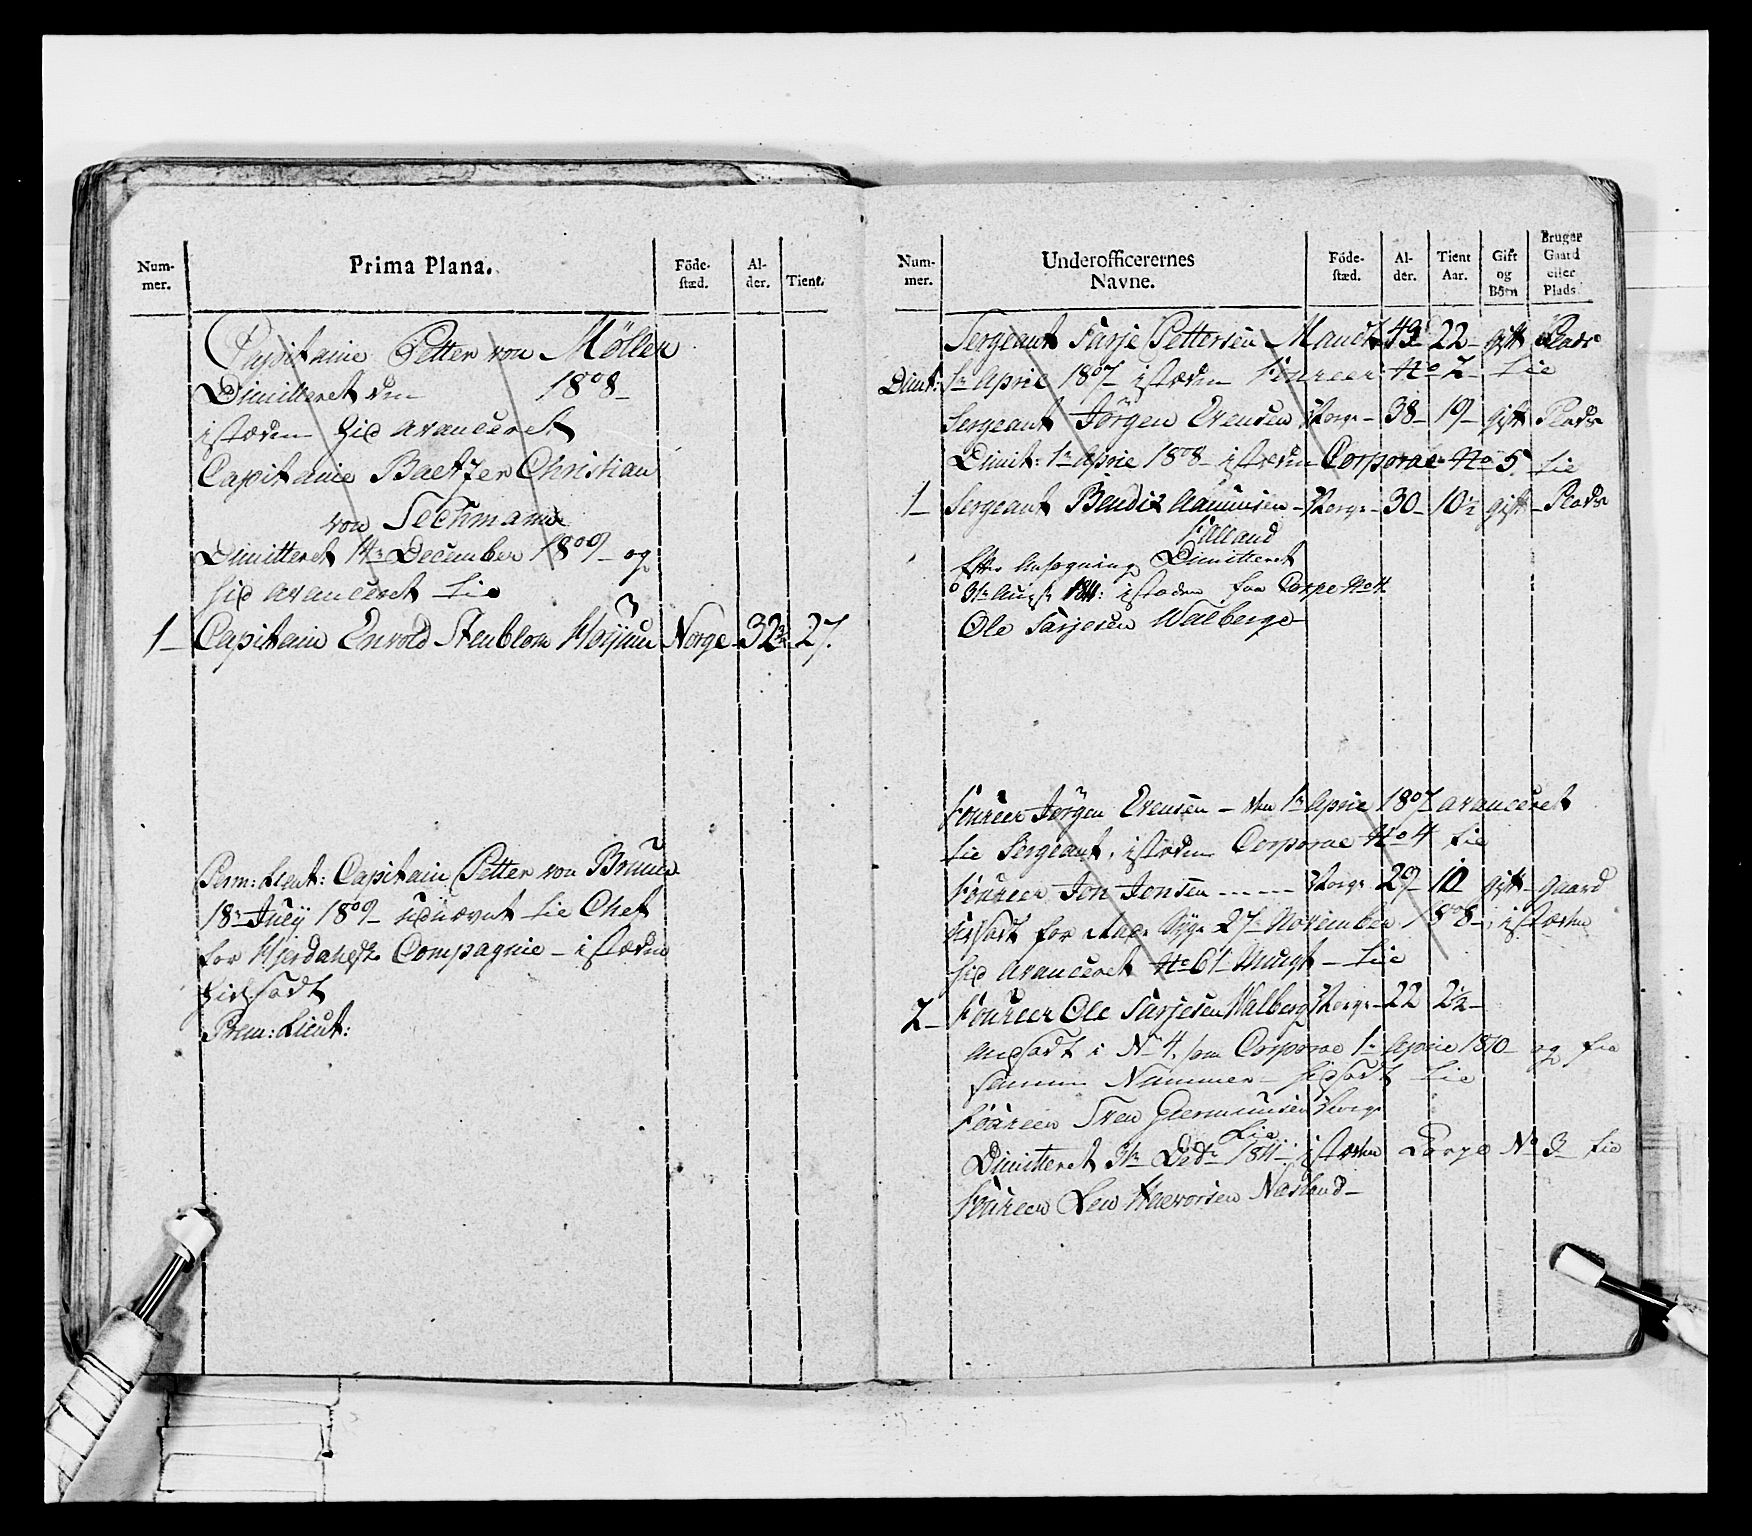 Num-
mer.
Prima Plana.
Föde-
stæd.
Al-
der.
Tient.
Capitaine Petter von Möller
Dimitteret den 1808
istæden Hid avanceret
Capitaine Baetzer Christian
von Techmann
Dimitteret 14 December 1809 og
hid avanceret til
1 Capitain Envold Stenblom Norge 32 27.
Prem: Lieut: Capitain Petter von Bruun
18 July 1809 udnævnt til Chef
for Compagnie istæden
hidsadt
Prem: Lieut:
Num-
mer.
Underofficerernes
Navne.
Föde-
stæd.
Al-
der.
Tient
Aar.
Gift
og
Börn
Bruger
Gaard
eller
Plads.
Sergeant Tarje Pettersen 43 22 gift Plads
Dimt: 1 April 1807 istæden Foureer No 2 til
Sergeant Jörgen Evensen Norge 38 19 gift Plads
Dimit: 1 April 1808 istæden Corporal No 5 til
1 Sergeant Bendix Aamunsen Norge 30 10½ gift Plads
Falland
Efter Ansøgning Dimitteret
31 Aug 1811: istæden fra Corpo No 4
Ole Tarjesen Walberge
Foureer Jörgen Evensen den 1 April 1807 avanceret
til Sergeant, istæden Corporal No 4 til
Foureer Jon Jensen Norge 29 10 gift gaard
hidsadt for 27 November 1808, istæden
hid avanceret No 61 Mungt til
2 Foureer Ole Tarjesen Walberg Norge 22 2½
andsadt i No 4, som Corporal 1 April 1810 og fra
samme Nummer hidsadt til
Foureer Sven Germunsen Norge
Lie
Dimitteret 31 1811 istæden Corpo No 3 til
Foureer Halvorsen Næsland